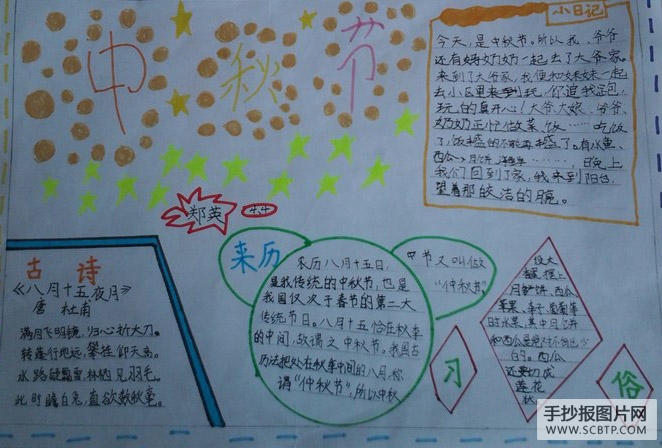 中秋节
小日记
今天,是中秋节。所以我、爷爷
还有妈奶奶一起去了大爷家。
来到了大爷家,我便和妹妹一起
去小区里来到玩,你追我赶,
玩的真开心!大爷大娘、爷爷、
奶奶正忙做菜饭……吃饭
了,饭
西瓜、月饼
我们回到了家,我来到阳台,
望着那皎洁的月亮。
郑英
古诗
《八月十五夜月》
唐 杜甫
满月飞明镜,归心折大刀。
转蓬行地远,攀桂仰天高。
水路疑霜雪,林栖见羽毛。
此时瞻白兔,直欲数秋毫。
来历
农历八月十五日,
是我传统的中秋节,也是
我国仅次于春节的第二大
传统节日。八月十五恰在秋季
的中间,故谓之中秋节。我国古
历法把处在秋季中间的八月,称
谓“仲秋节”,所以中秋
中节又叫做
“仲秋节”
习
俗
设大
香案,摆上
月饼、西瓜
苹果、
的水果,其中月饼
和西瓜是绝对不能少
的。西瓜
还要切成
莲花
状
手抄报图片网
WWW.SCBTP.COM